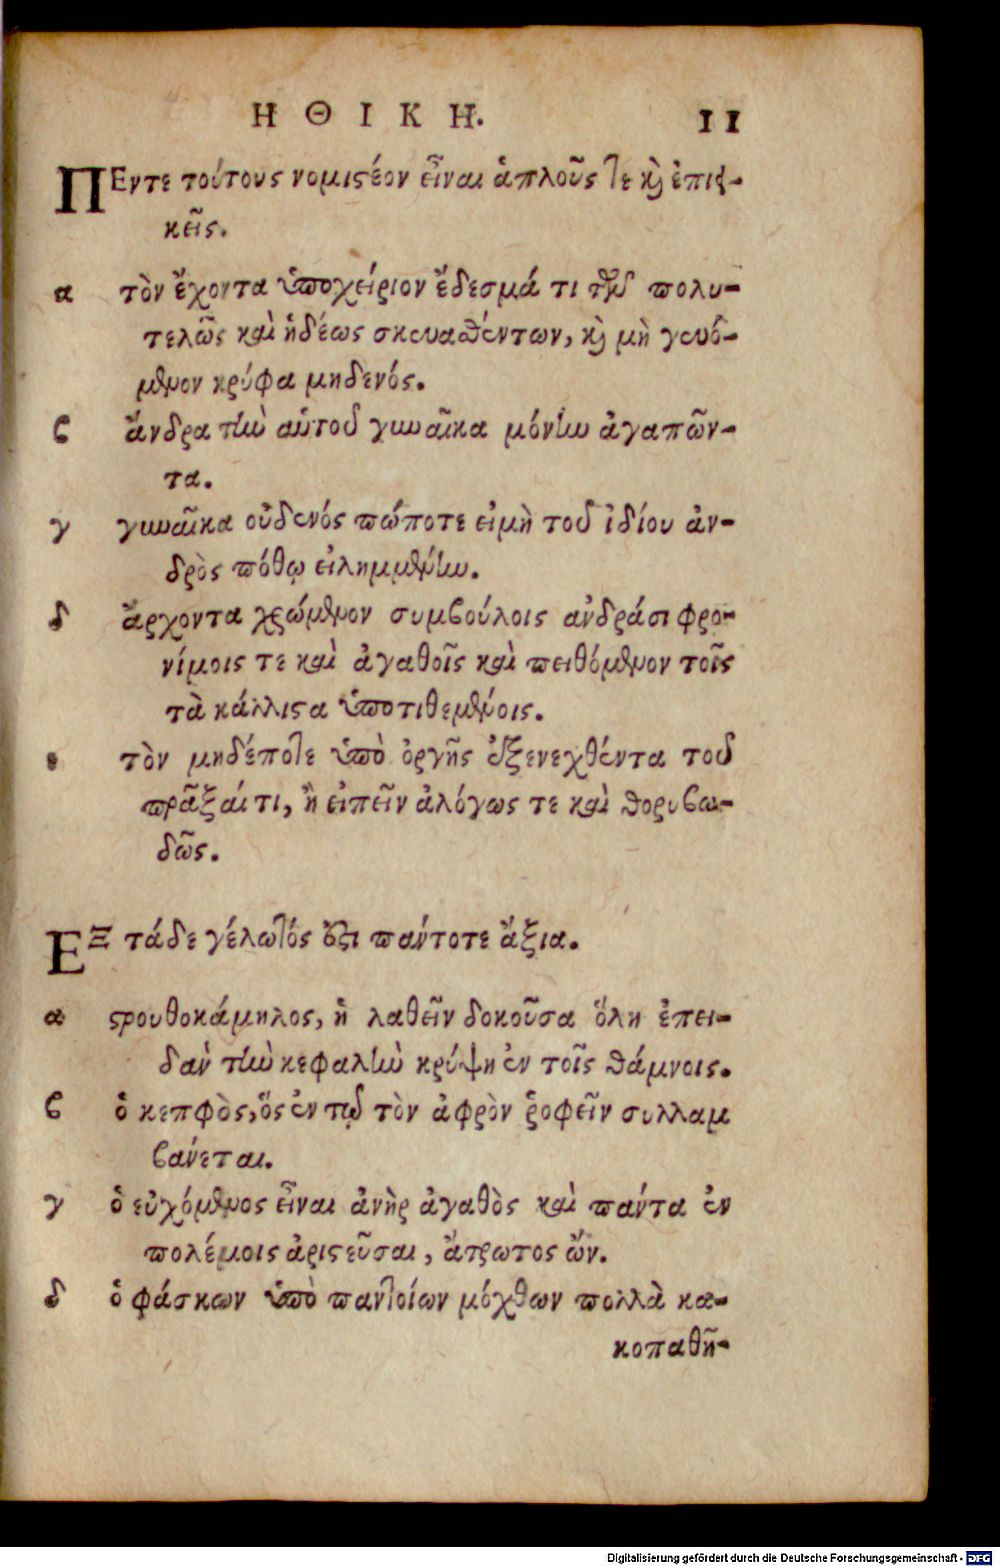 ΗΘΙΚΗ. 11
ΠΕντε τούτους νομιστέον εἶναι ἁπλοῦς τε καὶ ἐπιει-
κεῖς.
α τὸν ἔχοντα ὑποχείριον ἔδεσμά τι τῶν πολυ-
τελῶς καὶ ἡδέως σκευαθέντων, καὶ μὴ γευό-
μενον κρύφα μηδενός.
ϛ ἄνδρα τὴν αὑτοῦ γυναῖκα μόνην ἀγαπῶν-
τα.
γ γυναῖκα οὐδενός πώποτε εἰμὴ τοῦ ἰδίου ἀν-
δρὸς πόθῳ εἰλημμένην.
δ ἄρχοντα χρώμενον συμβούλοις ανδράσι φρο-
νίμοις τε καὶ ἀγαθοῖς καὶ πειθόμενον τοῖς
τὰ κάλλιστα ὑποτιθεμένοις.
ε τὸν μηδέποτε ὑπὸ ὀργῆς ἐξενεχθέντα τοῦ
πρᾶξαί τι, ἢ εἰπεῖν ἀλόγως τε καὶ θορυβω-
δῶς.
ΕΞ τάδε γέλωτός ἐστι πάντοτε ἄξια.
α στρουθοκάμηλος, ἡ λαθεῖν δοκοῦσα ὅλη ἐπει-
δαν τὴν κεφαλὴν κρύψη ἐν τοῖς θάμνοις.
β ὁ κεπφὸς, ὅς ἐν τῷ τὸν ἀφρὸν ῥοφεῖν συλλαμ
βάνεται.
γ ὁ εὐχόμενος εἶναι ἀνὴρ ἀγαθὸς καὶ πάντα ἐν
πολέμοις ἀριστεῦσαι, ἄτρωτος ὤν.
δ ὁ φάσκων ὑπὸ παντοίων μόχθων πολλὰ κα-
κοπαθῆ-
Digitalisierung gefördert durch die Deutsche Forschungsgemeinschaft - DFG